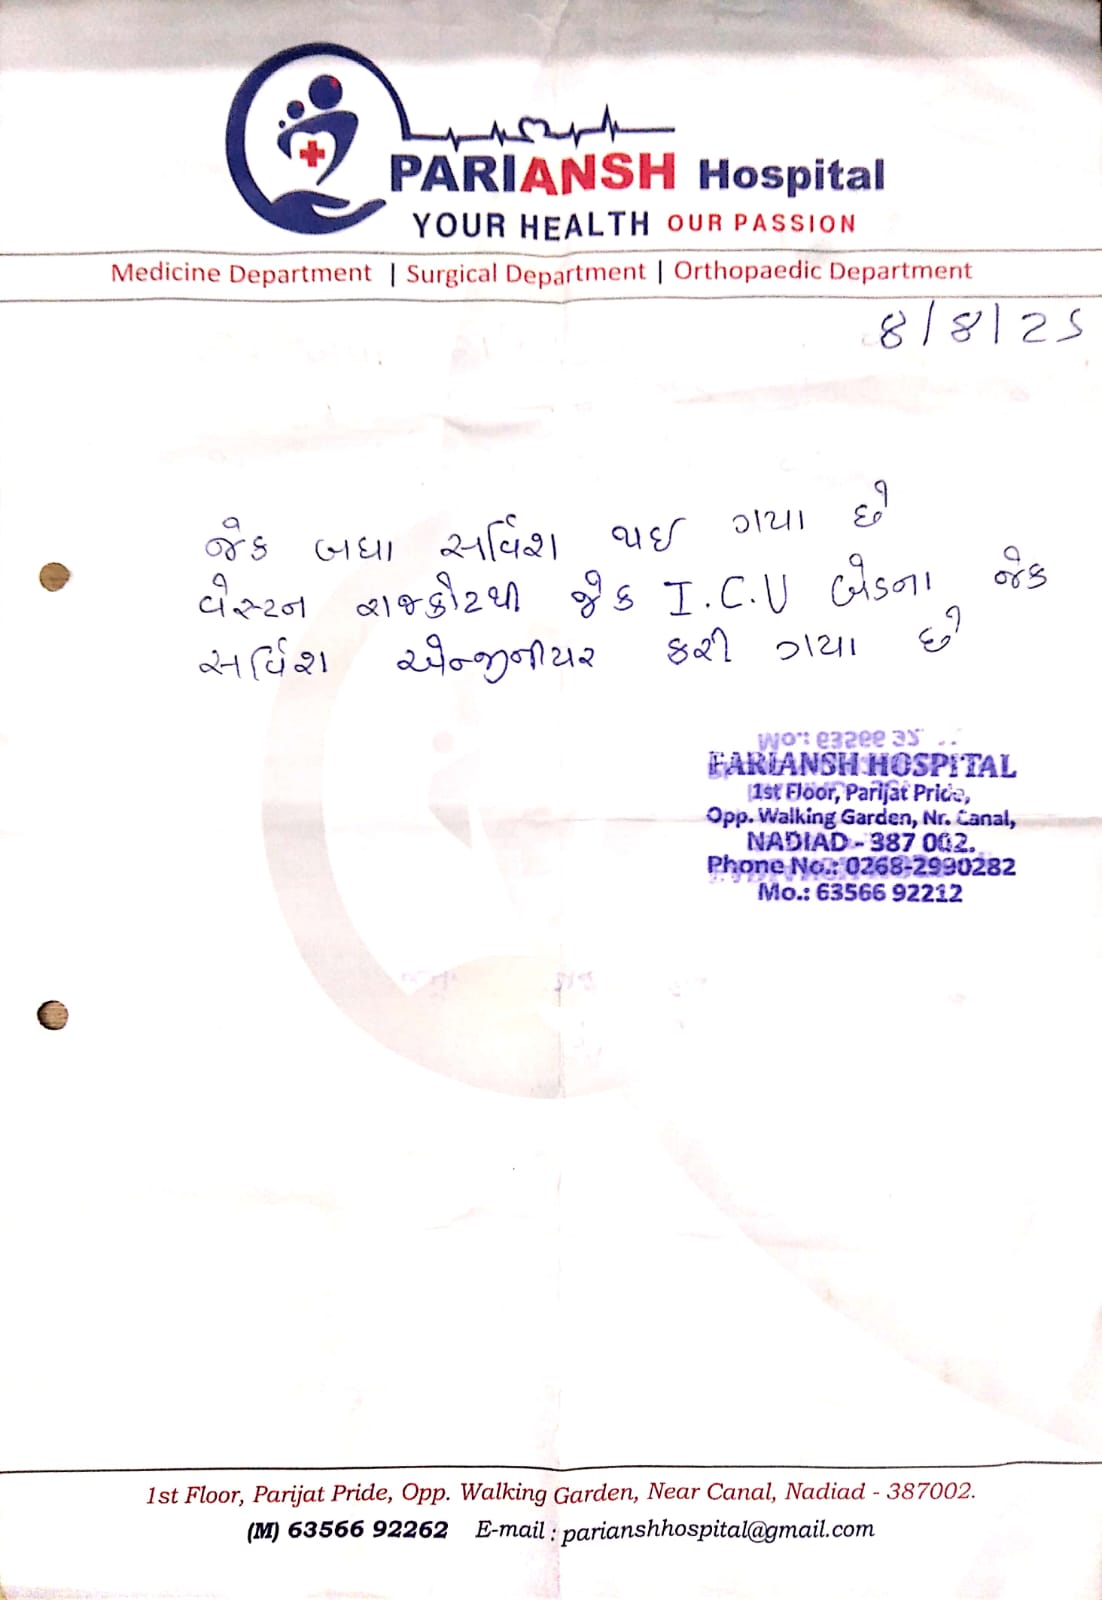 PARIANSH Hospital
YOUR HEALTH OUR PASSION
Medicine Department | Surgical Department | Orthopaedic Department
8/8/25
જેક બધા સર્વિશ થઈ ગયા છે
વેસ્ટન રાજકોટથી જેક I.C.U બેડના જેક
સર્વિશ એન્જીનીયર કરી ગયા છે
PARIANSH HOSPITAL
1st Floor, Parijat Pride,
Opp. Walking Garden, Nr. Canal,
NADIAD - 387 002.
Phone No.: 0268-2990282
Mo.: 63566 92212
1st Floor, Parijat Pride, Opp. Walking Garden, Near Canal, Nadiad - 387002.
(M) 63566 92262 E-mail : parianshhospital@gmail.com